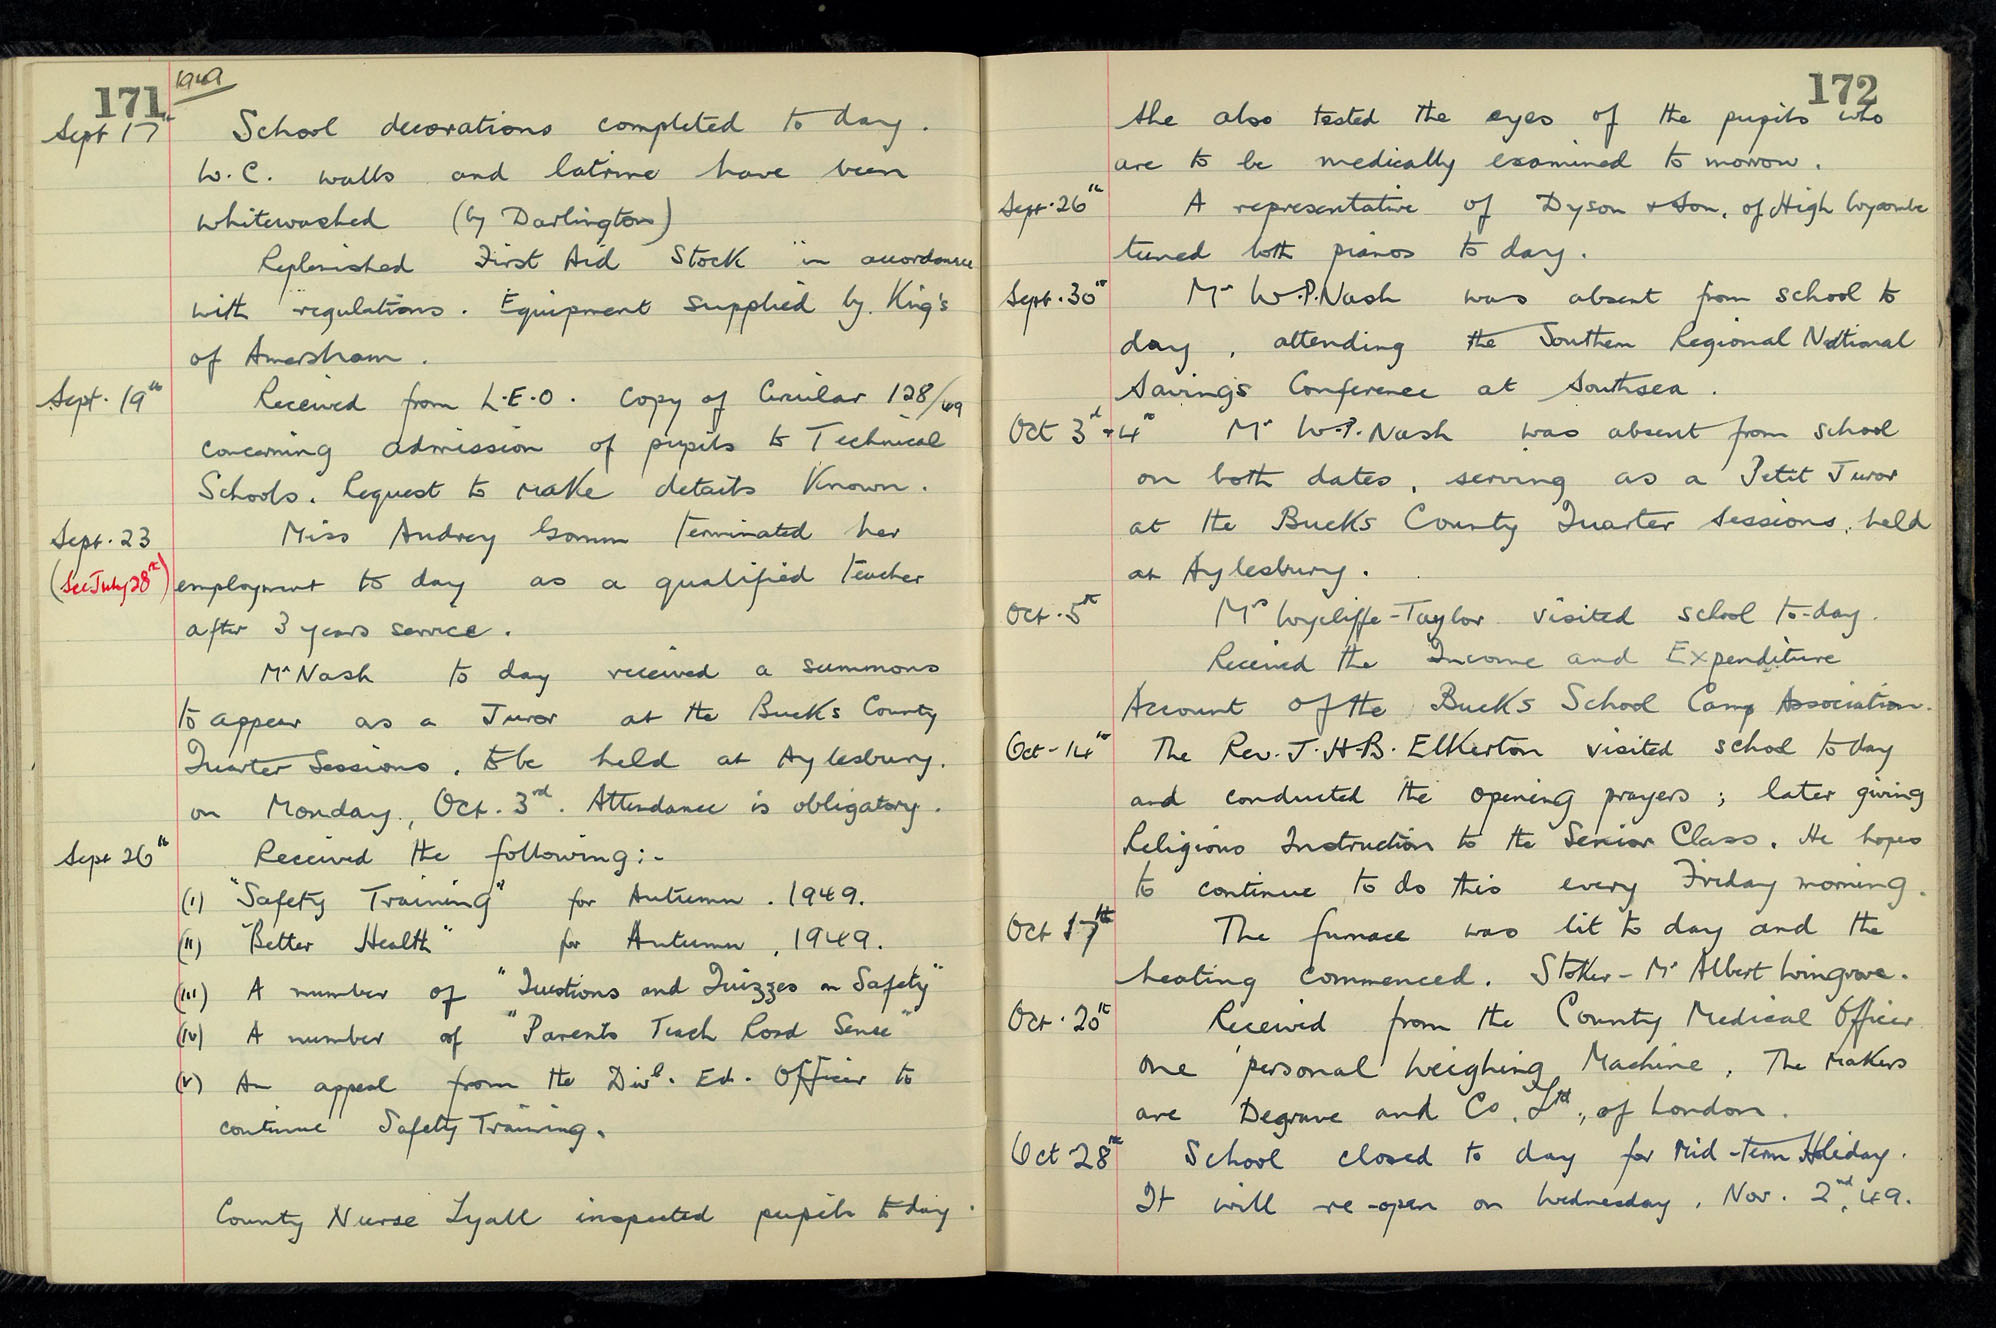 171
1949
Sept 17th School decorations completed to day.
W.C. walls and latrine have been
whitewashed (by Darlington)
Replenished First Aid Stock "in accordance
with regulations. Equipment supplied by King's
of Amersham.
Sept. 19th Received from L.E.O. copy of Circular 128/49
concerning admission of pupils to Technical
Schools. Request to make details known.
Sept. 23 Miss Audrey Gomm terminated her
(See July 28th) employment to day as a qualified teacher
after 3 years service.
Mr Nash to day received a summons
to appear as a Juror at the Bucks County
Quarter Sessions, to be held at Aylesbury.
on Monday, Oct. 3rd. Attendance is obligatory.
Sept 26th Received the following:-
(i) "Safety Training" for Autumn. 1949.
(ii) "Better Health" for Autumn, 1949.
(iii) A number of "Questions and Quizzes on Safety"
(iv) A number of "Parents Teach Road Sense"
(v) An appeal from the Divl. Ed. Officer to
continue Safety Training.
County Nurse Lyall inspected pupils to day.
172
She also tested the eyes of the pupils who
are to be medically examined to morrow.
Sept. 26th A representative of Dyson & Son, of High Wycombe
tuned both pianos to day.
Sept. 30th Mr W.P. Nash was absent from school to
day, attending the Southern Regional National
Savings Conference at Southsea.
Oct 3rd & 4th Mr W.P. Nash was absent from school
on both dates, serving as a Petit Juror
at the Bucks County Quarter Sessions, held
at Aylesbury.
Oct. 5th Mrs Wycliffe-Taylor visited school to-day.
Received the Income and Expenditure
Account of the Bucks School Camp Association.
Oct - 14th The Rev. J. H. B. Elkerton visited school to day
and conducted the opening prayers; later giving
Religious Instruction to the Senior Class. He hopes
to continue to do this every Friday morning.
Oct 17th The furnace was lit to day and the
heating commenced. Stoker - Mr Albert Wingrove.
Oct. 20th Received from the County Medical Officer
one personal Weighing Machine. The makers
are Degrave and Co. Ltd., of London.
Oct 28th School closed to day for Mid-term Holiday.
It will re-open on Wednesday, Nov. 2nd, 49.